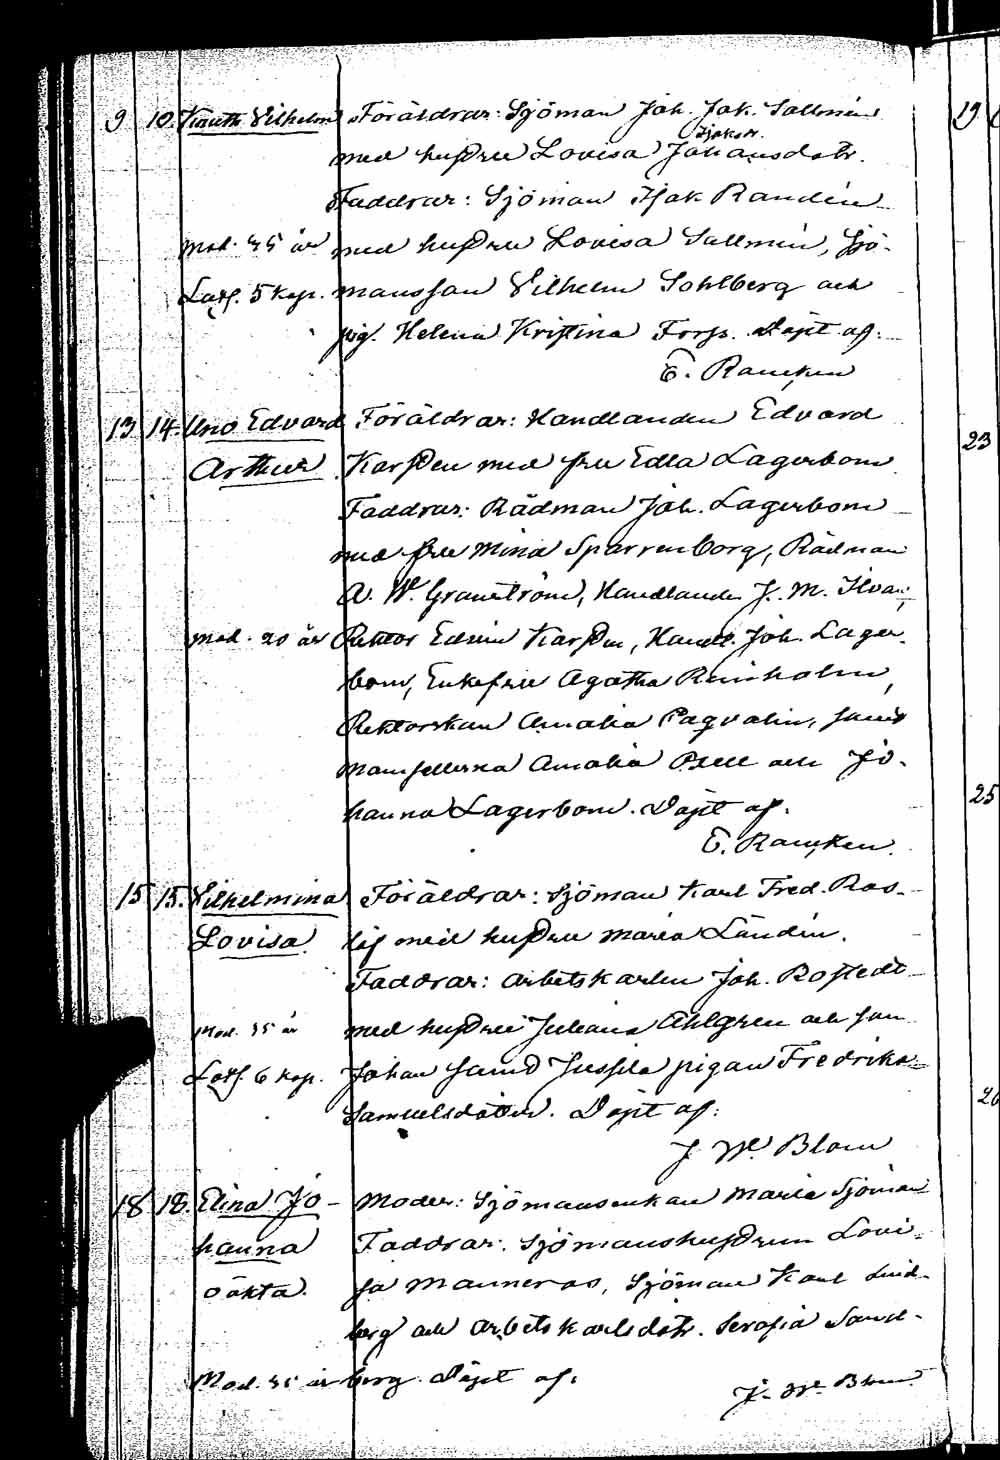 9 10. Knuth Vilhelm Föräldrar: Sjöman Joh. Jak. Sallmén
Isaksdr.
med hustru Lovisa Johansdotr.
Faddrar: Sjöman Isak Randén
Mod. 35 år med hustru Lovisa Sallmén, Sjö-
5 kop. mansson Vilhelm Sohlberg och
pig. Helena Kristina Forss. Döpt af:
E. Rancken
13 14. Uno Edvard Föräldrar: Handlanden Edvard
Arthur Karsten med fru Edla Lagerbom
Faddrar: Rådman Joh. Lagerbom
med fru Mina Sparrenborg, Rådman
A. W. Granström, Handlanden J. M.
Mod. 20 år Rektor Edvin Karsten, Handl. Joh. Lager-
bom, Enkefru Agatha Reinholm,
Rektorskan Amalia samt
Mamsellerna Amalia och Jo-
hanna Lagerbom. Döpt af:
E. Rancken.
15 15. Vilhelmina Föräldrar: Sjöman Karl Fred. Ros-
Lovisa löf med hustru Maria Landén.
Faddrar: Arbetskarlen Joh. Rostedt
Mod. 35 år med hustru Juliana Åhlgren och son
6 kop. Johan samt pigan Fredrika
Samuelsdotter. Döpt af:
J. W. Blom
18 18. Elina Jo- Moder: Sjömansenkan Maria Sjöman
hanna Faddrar: Sjömanshustrun Lovi-
oäkta. sa Manneros, Sjöman Karl Lind-
berg och Arbetskarlsdotr. Serafia Sand-
Mod. 35 år berg. Döpt af:
J. W. Blom
19
23
25
26